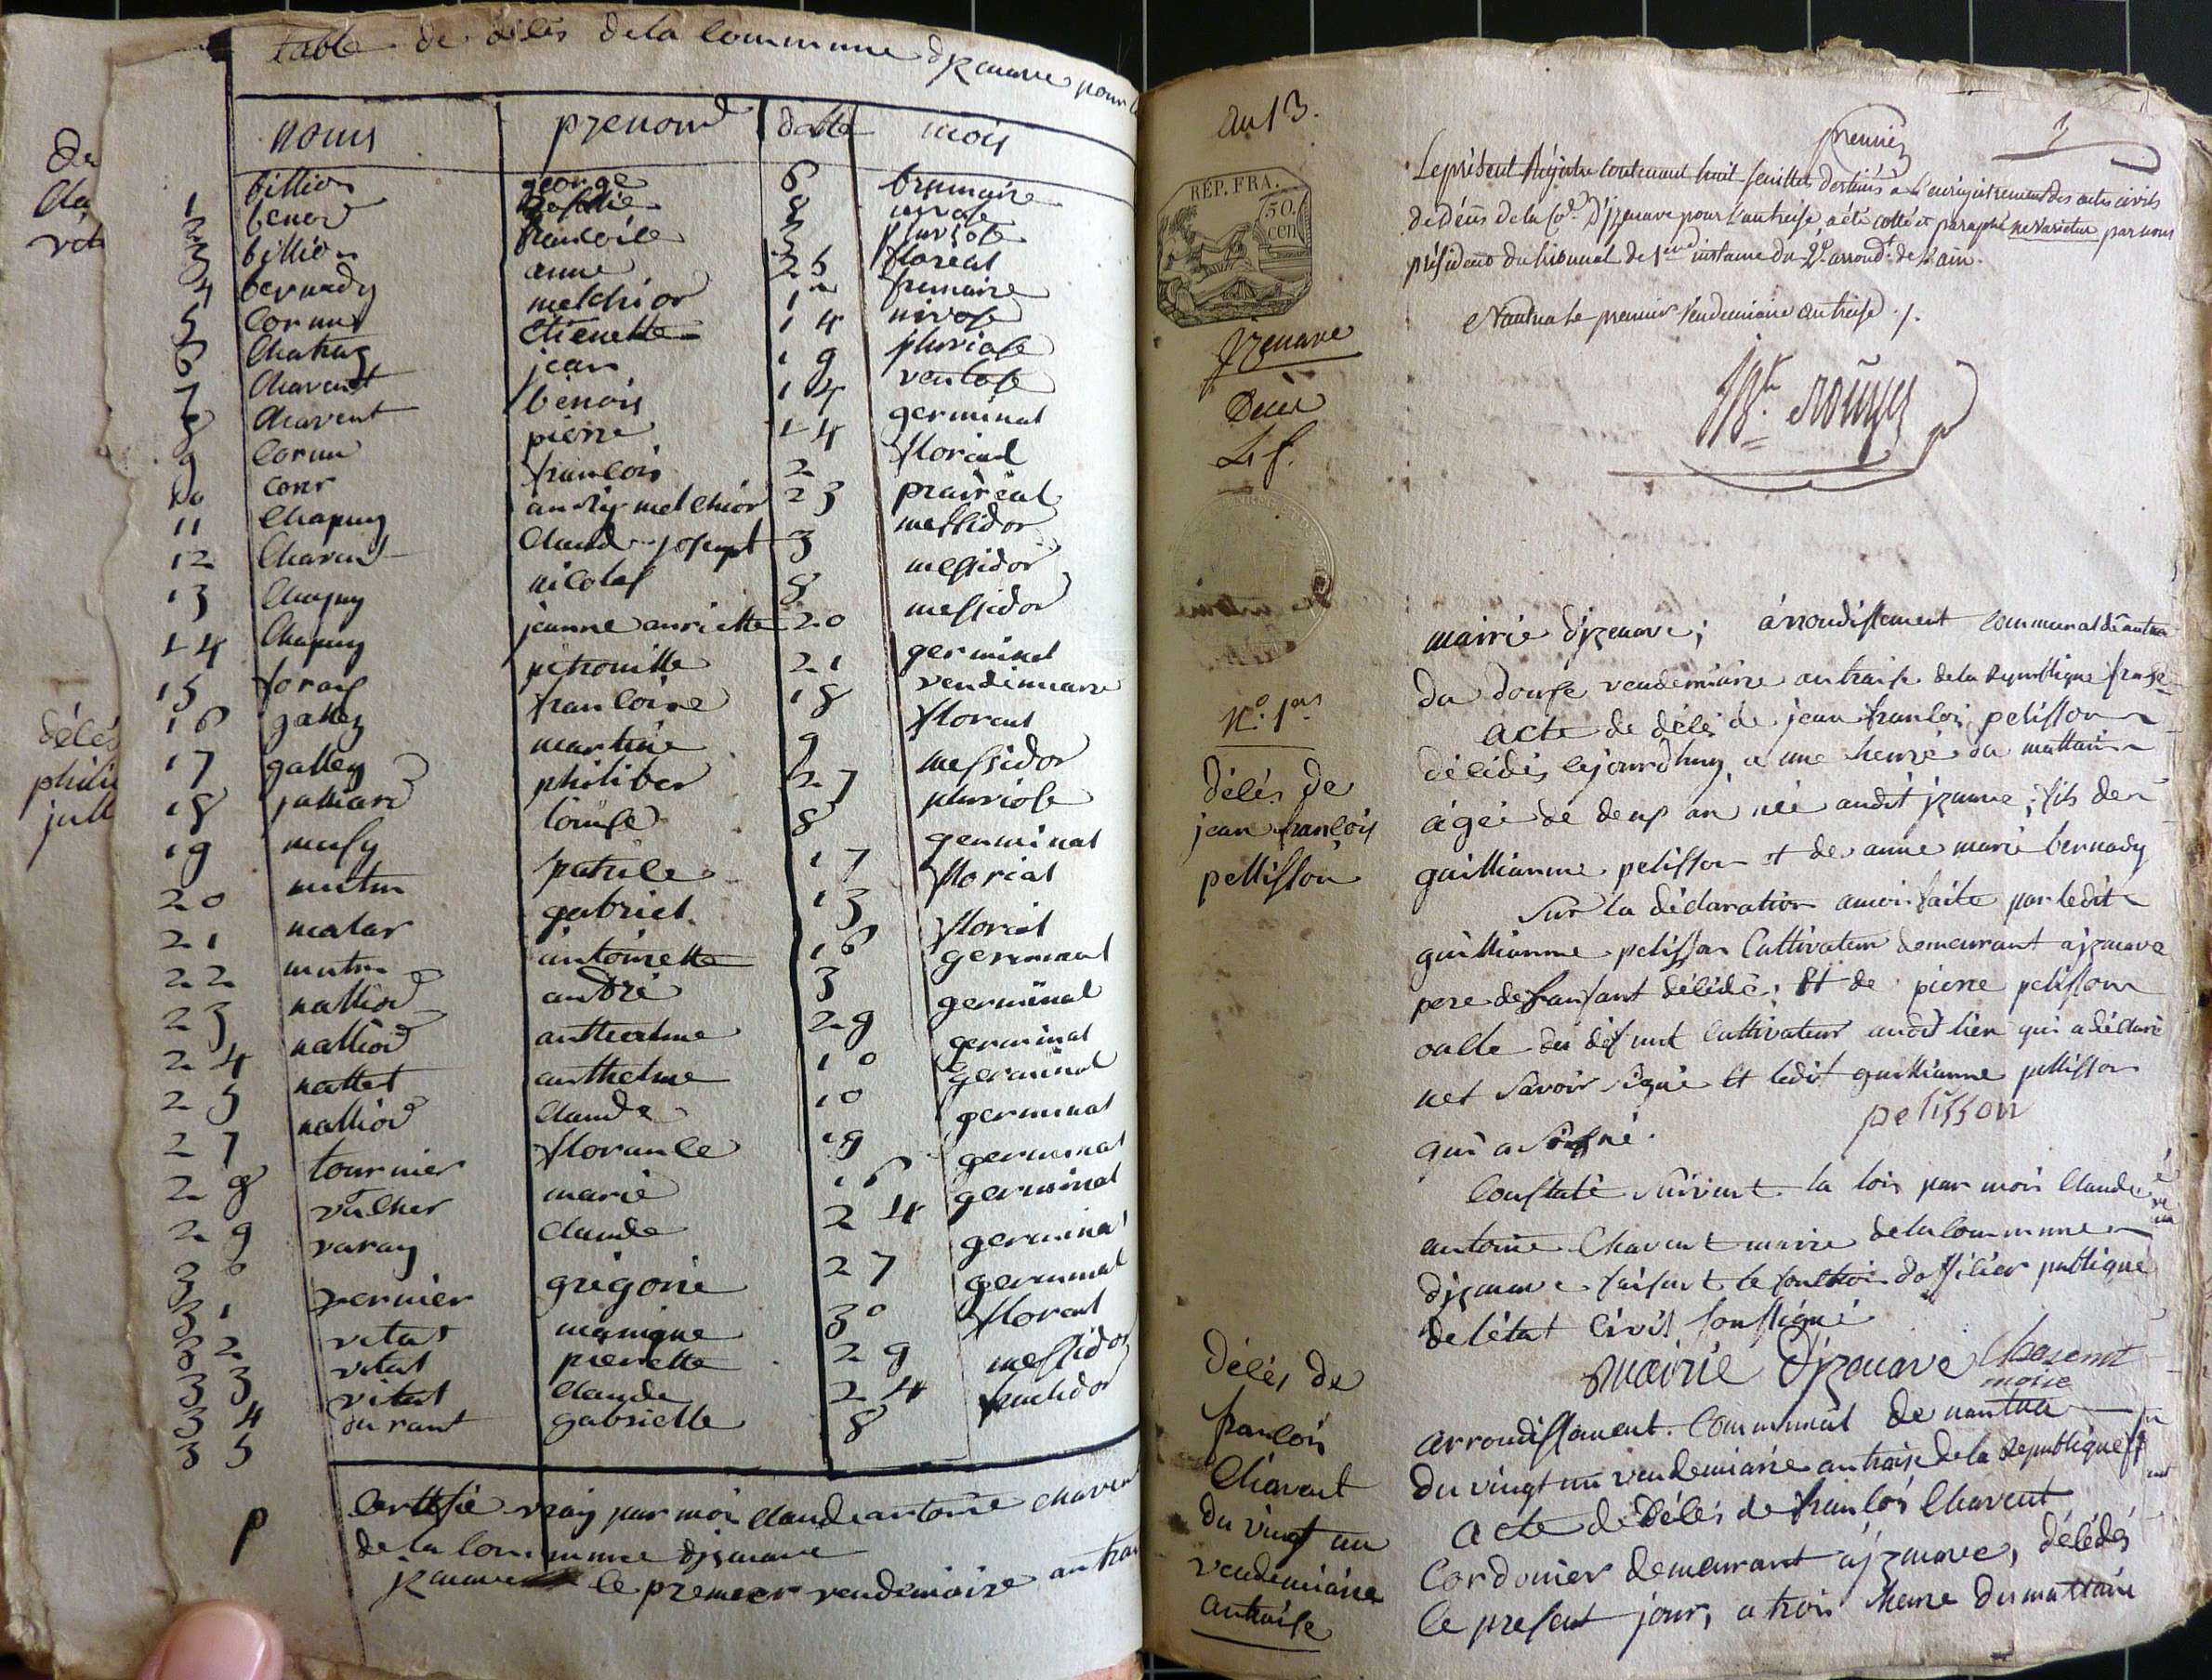 table de décès de la commune d'izenave pour
noms prenoms datte mois
1 billion george 6 brumaire
2 benod 8 nivose
3 billion francoise 5 pluviose
4 bernady anne 25 floreal
5 cornu melchior 1er frimaire
6 Chatnay etienette 14 nivose
7 Chavent jean 19 pluviose
8 Chavent benois 14 ventose
9 Cornu pierre 14 germinal
10 francois 2 floreal
11 Chapuy melchior 23 prairéal
12 Chavent Claude josept 3 messidor
13 Chapuy nicolas 8 messidor
14 Chapuy jeanne anriette 20 messidor
15 petronille 21 germinal
16 galley francoise 18 vendemiaire
17 galley martine 9 floreal
18 julliard philiber 27 messidor
19 musy louise 8 pluviose
20 mutin patrice 17 germinal
21 gabriel 13 floreal
22 mutin antoinette 16 floreal
23 nalliod andré 3 germinal
24 nalliod anthealme 29 germinal
25 nallet anthelme 10 germinal
27 nalliod Claude 10 germinal
28 tournier florance 19 germinal
29 marie 16 germinal
30 varay Claude 24 germinal
31 vernier grégoire 27 germinal
32 vitat manique 30 germinal
33 vitat pierrette 29 floreal
34 vitat Claude 24 messidor
35 durant gabrielle 8 fructidor
certifié vray par moi claude antoine chavent
de la commune d'izenave
izenave le premier vendemaire an
décès
an 13.
RÉP. FRA.
50. cen
Izenave
Décès
N.o 1er
Décés de
jean francois
pellisson
Décés de
francois
Chavent
du vingt un
vendemiaire
an traise
premier 1
Le présent Régistre contenant huit feuillets destinés à l'enrégistrement des actes civils
de décès de la Cne D'izenave pour l'an treise, a été cotté et paraphé ne varietur par nous
président du tribunal de 1ere instance du 2e arrondt de l'ain.
Nantua le premier Vendemiaire an treise
mairie d'izenave; arrondissement communal de nantua
du douse vendémiaire an traise de la republique franse
acte de décés de jean francois pelisson
décédés cejourd'huy a une heure du mattain
agée de deux an née audit izenave; fils de
guillianme pelisson et de anne marie bernady
Sur la déclaration a moi faite par ledit
guillianme pelisson Cultivateur demeurant a izenave
pere de l'anfant décédé. Et de pierre pelisson
oncle du défunt cultivateur audit lieu qui a déclaré
net savoir signé Et ledit guillianme pellisson
qui a signé. pelisson
Constaté suivent la lois par moi Claude
antoine Chavent maire de la commune
d'izenave faisant le fonction d'officier publique
de l'état civil soussigné
Mairie d'izenave Chavent maire
arrondissament communal de nantua
du vingt un vendemiaire an traise de la republique
acte de décés de francois Chavent
Cordonier demeurant a izenave, décédés
le presant jour, a trois heure du mattain